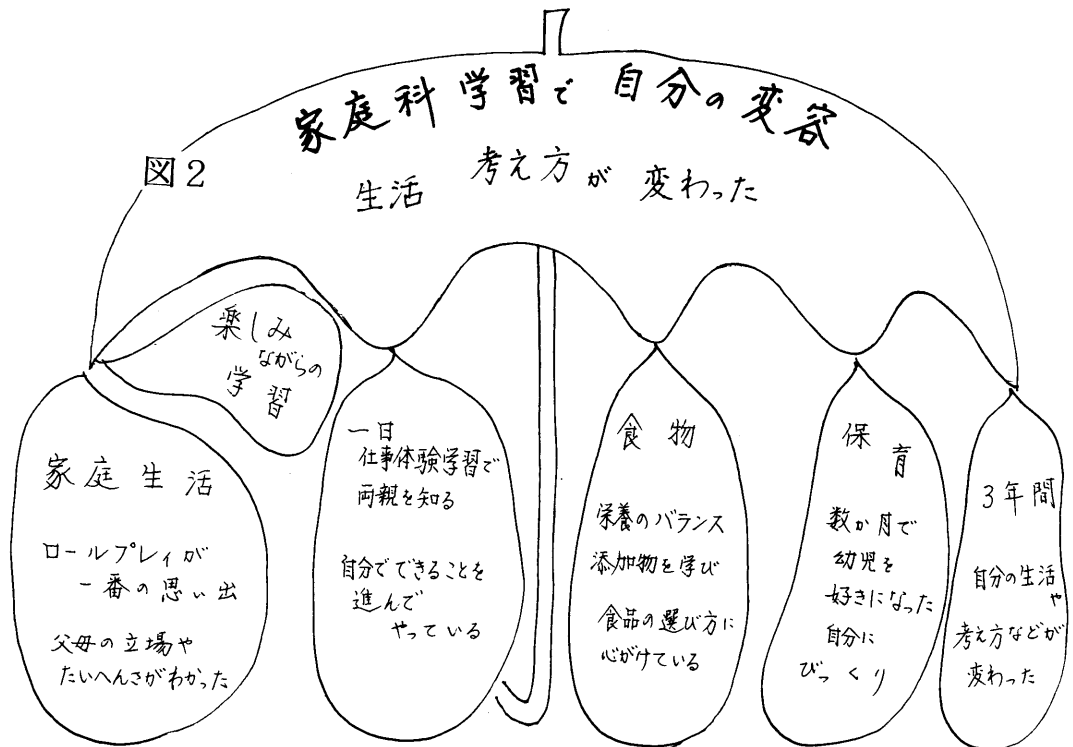 家庭科学習で 自分の変容
図2
生活 考え方が 変わった
楽しみ
ながらの
学習
家庭生活
ロールプレイが
一番の思い出
父母の立場や
たいへんさがわかった
一日
仕事体験学習で
両親を知る
自分でできることを
進んで
やっている
食物
栄養のバランス
添加物を学び
食品の選び方に
心がけている
保育
数か月で
幼児を
好きになった
自分に
びっくり
3年間
自分の生活や
考え方などが
変わった